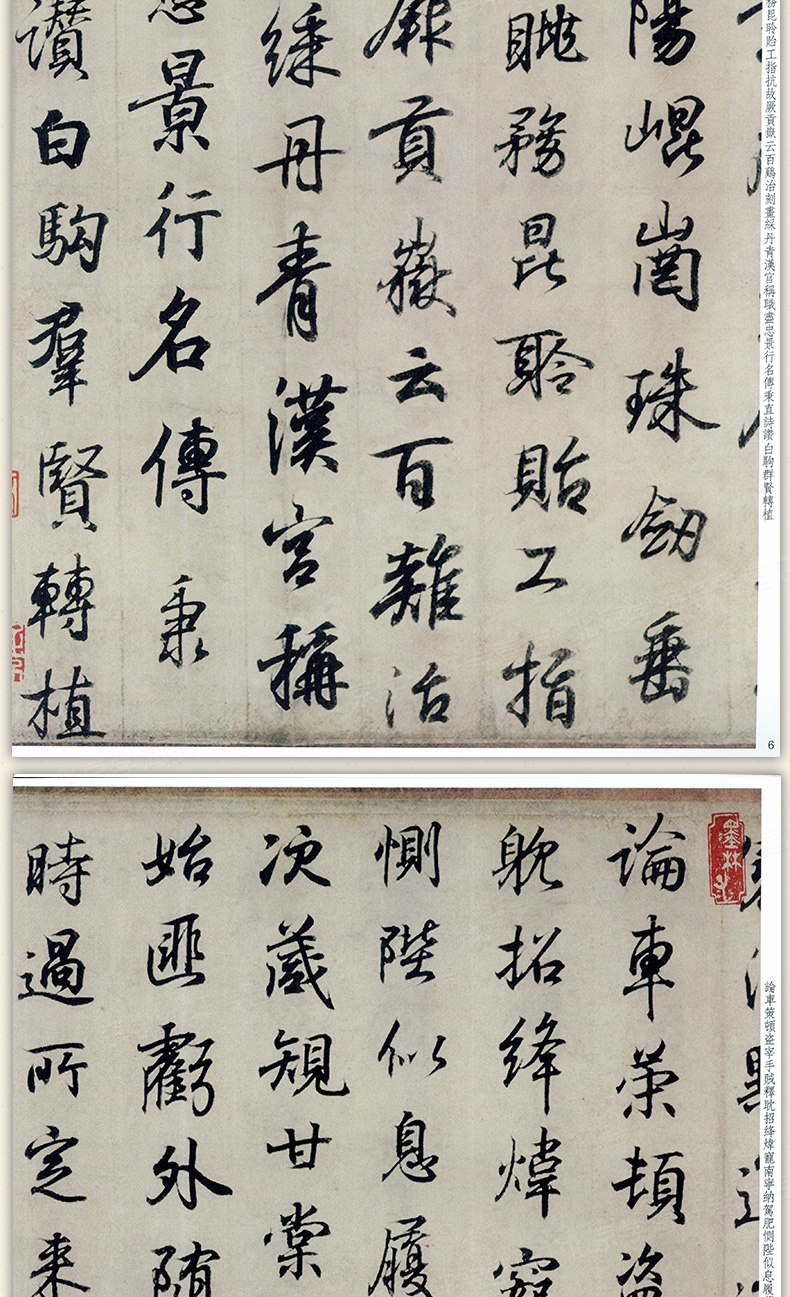 務昆聆貽工指抗故厥貢嶽云百鷄治刻畫綵丹青漢官稱職盡忠景行名傳秉直詩讚白駒群賢轉植
陽崐崗珠劒垂
眺務昆聆貽工指
厥貢嶽云百雞治
綵丹青漢官稱
忠景行名傳秉
讚白駒羣賢轉植
6
墨林
論車策頓盜宰手賊釋耽招絳煒寵南寧納駕肥惻陛似息履
論車策頓盜
耽招絳煒寵
惻陛似息履
次葴規甘棠
始匪虧外隨
時過所定来